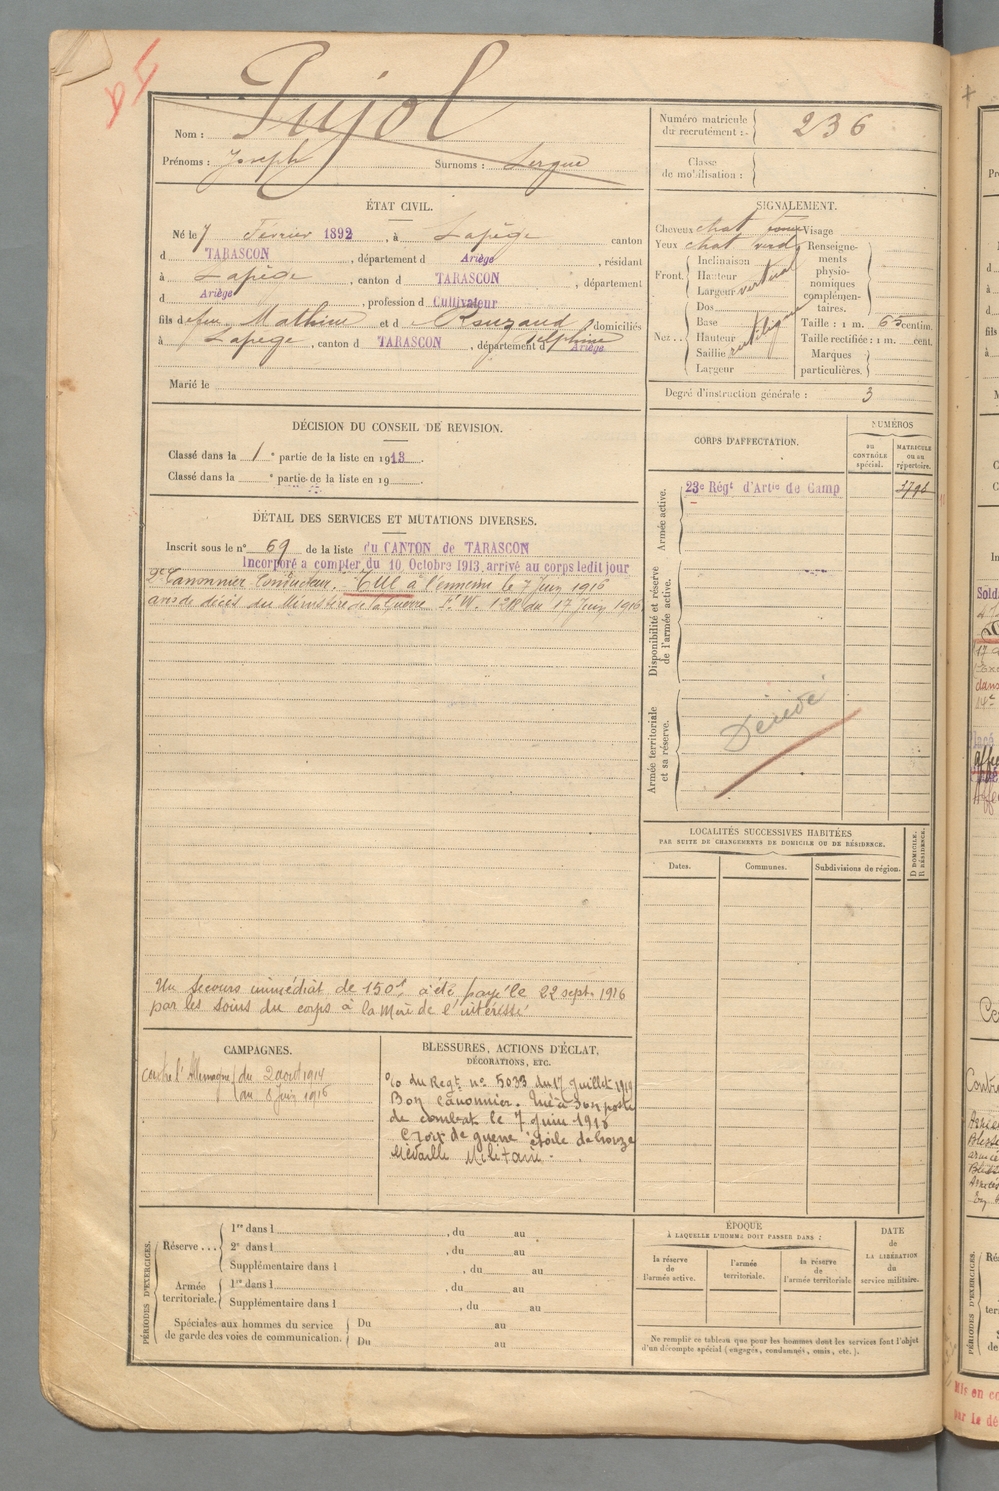 Pujol
Nom :
Prénoms : Joseph Surnoms : Sergue
Numéro matricule du recrutement : 236
Classe de mobilisation :
ÉTAT CIVIL.
Né le 7 Février 1892, à Lapège canton
d TARASCON, département d Ariège, résidant
à Lapège, canton d TARASCON, département
d Ariège, profession d Cultivateur
fils de feu Mathieu et d Rouzaud Delphine domiciliés
à Lapège, canton d TARASCON, département d Ariège
Marié le
SIGNALEMENT.
Cheveux chat foncé Visage
Yeux chat verd
Front. Inclinaison vertical
Hauteur
Largeur
Nez. Dos rectiligne
Base
Hauteur
Saillie
Largeur
Renseignements physionomiques complémentaires.
Taille : 1 m. 65 centim.
Taille rectifiée : 1 m. cent.
Marques particulières.
Degré d'instruction générale : 3
DÉCISION DU CONSEIL DE REVISION.
Classé dans la 1e partie de la liste en 1913.
Classé dans la e partie de la liste en 19
CORPS D'AFFECTATION.
NUMÉROS
au CONTRÔLE spécial.
MATRICULE ou au répertoire.
Armée active.
23e Régt d'Artie de Camp
Disponibilité et réserve de l'armée active.
Armée territoriale et sa réserve.
Décédé
DÉTAIL DES SERVICES ET MUTATIONS DIVERSES.
Inscrit sous le n° 69 de la liste du CANTON de TARASCON
Incorporé à compter du 10 Octobre 1913, arrivé au corps ledit jour
2e Canonnier Conducteur. Tué à l'ennemi le 7 Juin 1916
avis de décès du Ministère de la Guerre du 17 Juin 1916
Un secours immédiat de 150f a été payé le 22 sept. 1916
par les soins du corps à la Mère de l'intéressé
LOCALITÉS SUCCESSIVES HABITÉES
PAR SUITE DE CHANGEMENTS DE DOMICILE OU DE RÉSIDENCE.
Dates. Communes. Subdivisions de région.
D DOMICILE.
R RÉSIDENCE.
CAMPAGNES.
contre l'Allemagne du 2 août 1914
au 8 Juin 1916
BLESSURES, ACTIONS D'ÉCLAT,
DÉCORATIONS, ETC.
% du Regt n° 5033 du 17 Juillet 1919
Bon canonnier. Tué à son poste
de combat le 7 Juin 1916
Croix de guerre étoile de bronze
Médaille Militaire.
PÉRIODES D'EXERCICES.
Réserve... 1re dans l , du au
2e dans l , du au
Supplémentaire dans l , du au
Armée territoriale. 1re dans l , du au
Supplémentaire dans l , du au
Spéciales aux hommes du service de garde des voies de communication. Du au
Du au
ÉPOQUE
À LAQUELLE L'HOMME DOIT PASSER DANS :
la réserve de l'armée active.
l'armée territoriale.
la réserve de l'armée territoriale
DATE de LA LIBÉRATION du service militaire.
Ne remplir ce tableau que pour les hommes dont les services font l'objet
d'un décompte spécial (engagés, condamnés, omis, etc.).